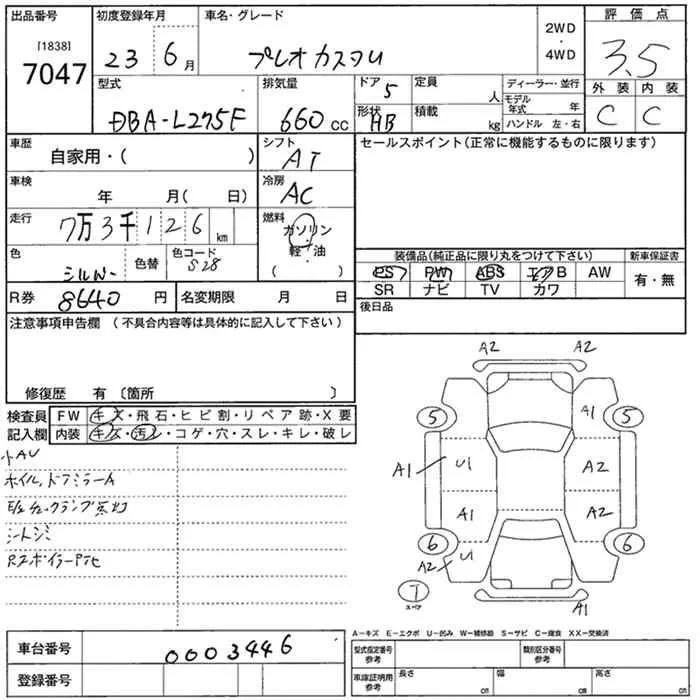 出品番号 初度登録年月 車名・グレード 2WD ・ 4WD 評価点
[1838]
7047 23 6月 プレオ カスタム 3.5
型式 排気量 ドア 5 定員 人 ディーラー・並行 外装 内装
DBA-L275F 660cc 形状 HB 積載 kg モデル年式 年 C C
ハンドル 左・右
車歴 自家用・( ) シフト AT セールスポイント(正常に機能するものに限ります)
車検 年 月( 日) 冷房 AC
走行 7万3千126km 燃料 ガソリン
軽・油
( )
色 シルバー 色替 色コード S28
装備品(純正品に限り丸をつけて下さい) 新車保証書
PS PW ABS エアB AW 有・無
SR ナビ TV カワ
R券 8640円 名変期限 月 日 後日品
注意事項申告欄 (不具合内容等は具体的に記入して下さい)
修復歴 有 〔箇所 〕
検査員 FW キズ・飛石・ヒビ割・リペア跡・X要
記入欄 内装 キズ・汚レ・コゲ・穴・スレ・キレ・破レ
小AU
ホイル、ドアミラーA
E/gチェックランプ点灯
シートシミ
Rスポイラー
A2 A2
5 A1 5
A1 U1 A2
A1 A2
6 A2 U1 6
T
スペア
A1
A-キズ E-エクボ U-凹み W-補修跡 S-サビ C-腐食 XX-交換済
車台番号 0003446
登録番号
型式指定番号 参考 類別区分番号 参考
車庫証明用 参考 長さ cm 幅 cm 高さ cm